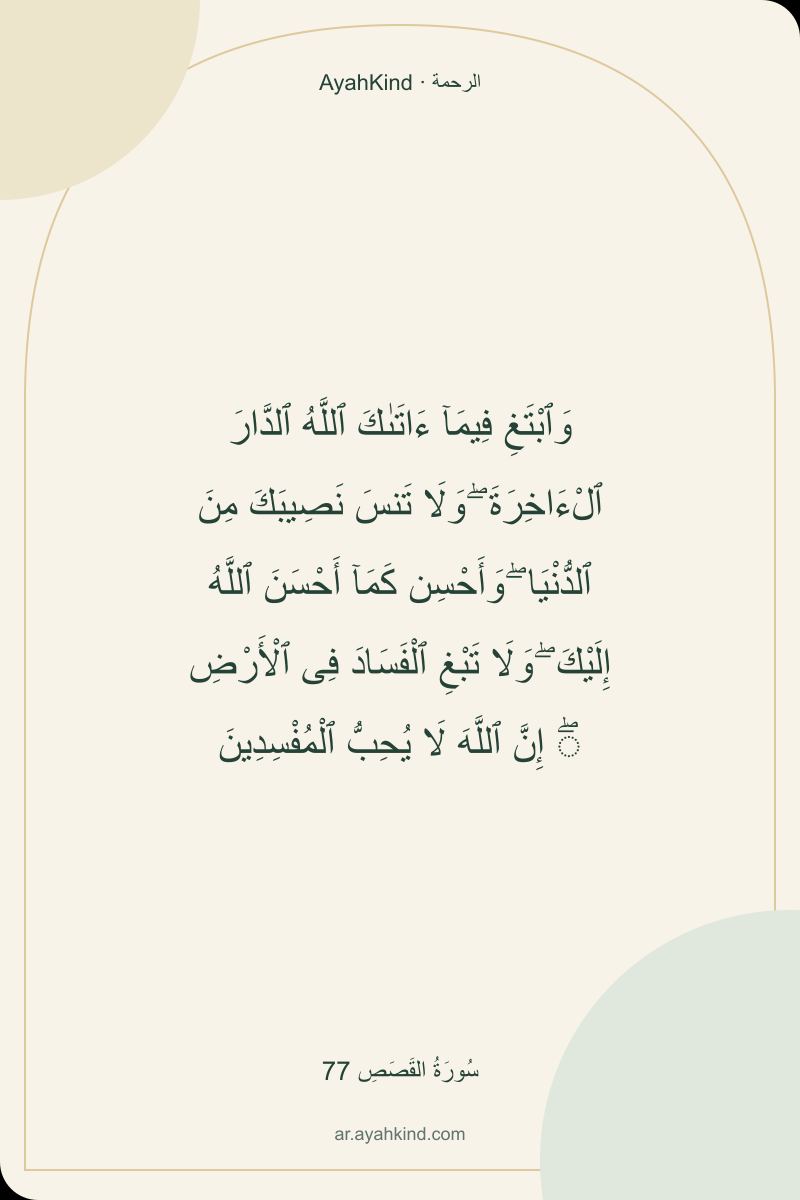 AyahKind · الرحمة
وَٱبْتَغِ فِيمَآ ءَاتَىٰكَ ٱللَّهُ ٱلدَّارَ
ٱلْءَاخِرَةَ ۖ وَلَا تَنسَ نَصِيبَكَ مِنَ
ٱلدُّنْيَا ۖ وَأَحْسِن كَمَآ أَحْسَنَ ٱللَّهُ
إِلَيْكَ ۖ وَلَا تَبْغِ ٱلْفَسَادَ فِى ٱلْأَرْضِ
ۖ إِنَّ ٱللَّهَ لَا يُحِبُّ ٱلْمُفْسِدِينَ
سُورَةُ القَصَصِ 77
ar.ayahkind.com